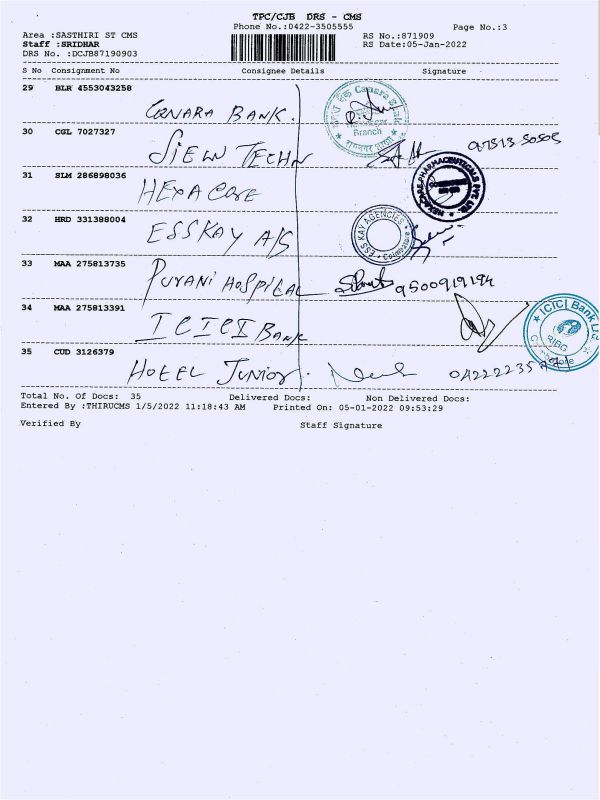 TPC/CJB DRS - CMS
Phone No.:0422-3505555
Page No.:3
Area :SASTHIRI ST CMS
RS No.:871909
Staff :SRIDHAR
RS Date:05-Jan-2022
DRS No. :DCJB87190903
S No Consignment No Consignee Details Signature
29 BLR 4553043258
CANARA BANK.
Canara Bank
Branch
30 CGL 7027327
SIEWN TECHN
97513 50505
31 SLM 286898036
HEXA CORE
32 HRD 331388004
ESSKAY A/S
ESS KAY AGENCIES
33 MAA 275813735
PURANI HOSPITAL
9500919194
34 MAA 275813391
ICICI BANK
ICICI Bank
RIBG
35 CUD 3126379
HOTEL JUNIOR.
Total No. Of Docs: 35 Delivered Docs: Non Delivered Docs:
Entered By :THIRUCMS 1/5/2022 11:18:43 AM Printed On: 05-01-2022 09:53:29
Verified By Staff Signature